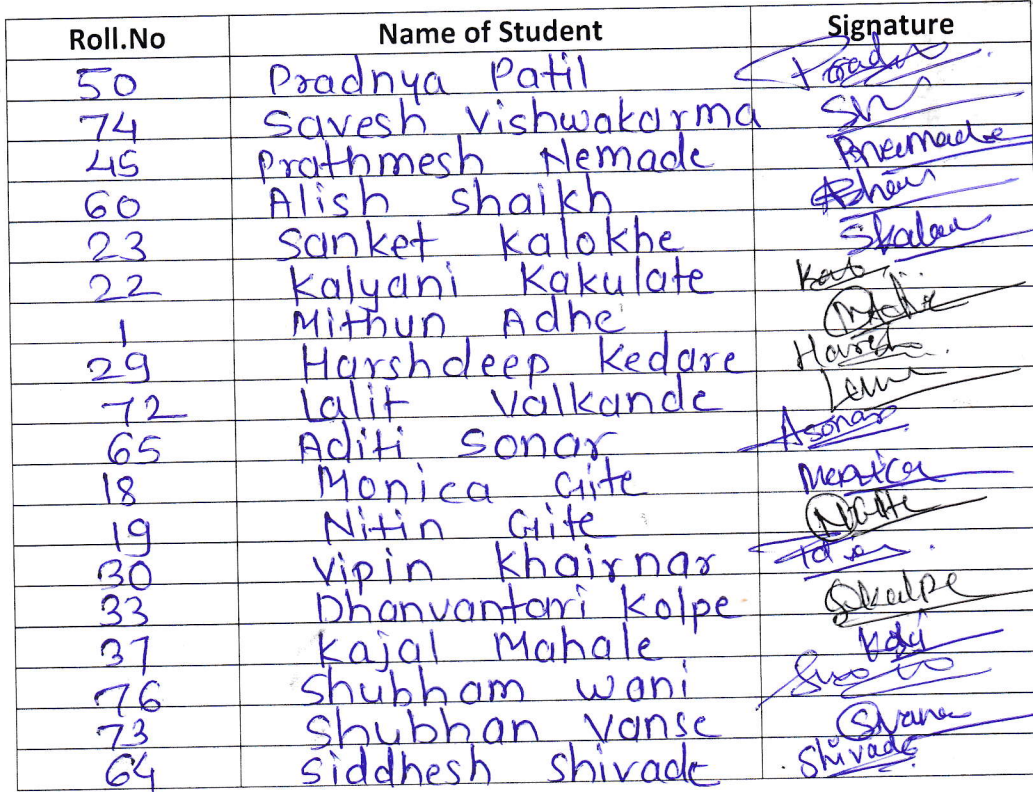 Roll.No Name of Student Signature
50 Pradnya Patil
74 Savesh Vishwakarma
45 Prathmesh Nemade
60 Alish Shaikh
23 Sanket Kalokhe
22 Kalyani Kakulate
1 Mithun Adhe
29 Harshdeep Kedare
72 Lalit Valkande
65 Aditi Sonar Asonar
18 Monica Gite Monica
19 Nitin Gite
30 Vipin Khairnar
33 Dhanvantari Kolpe
37 Kajal Mahale
76 Shubham Wani
73 Shubhan Vanse
64 Siddhesh Shivade Shivade